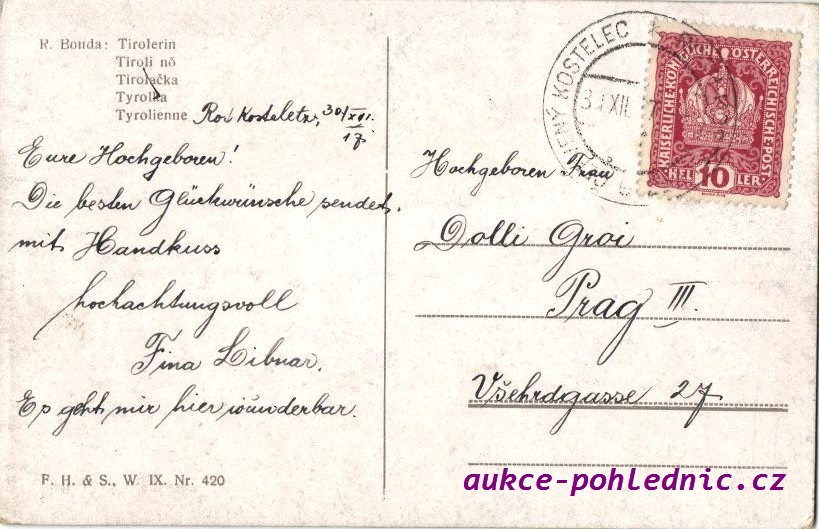 R. Bouda: Tirolerin
Tiroli nő
Tirolačka
Tyrolka
Tyrolienne
Rot Kosteletz, 30/XII. 17
Eure Hochgeboren!
Die besten Glückwünsche sendet
mit Handkuss
hochachtungsvoll
Fina Libnar.
Es geht mir hier wunderbar.
F. H. & S., W. IX. Nr. 420
ČERVENÝ KOSTELEC
XII
KAISERLICHE KÖNIGLICHE ÖSTERREICHISCHE POST
HELLER
10
Hochgeboren Frau
Dolli Groi
Prag III.
Všehrdgasse 27
aukce-pohlednic.cz